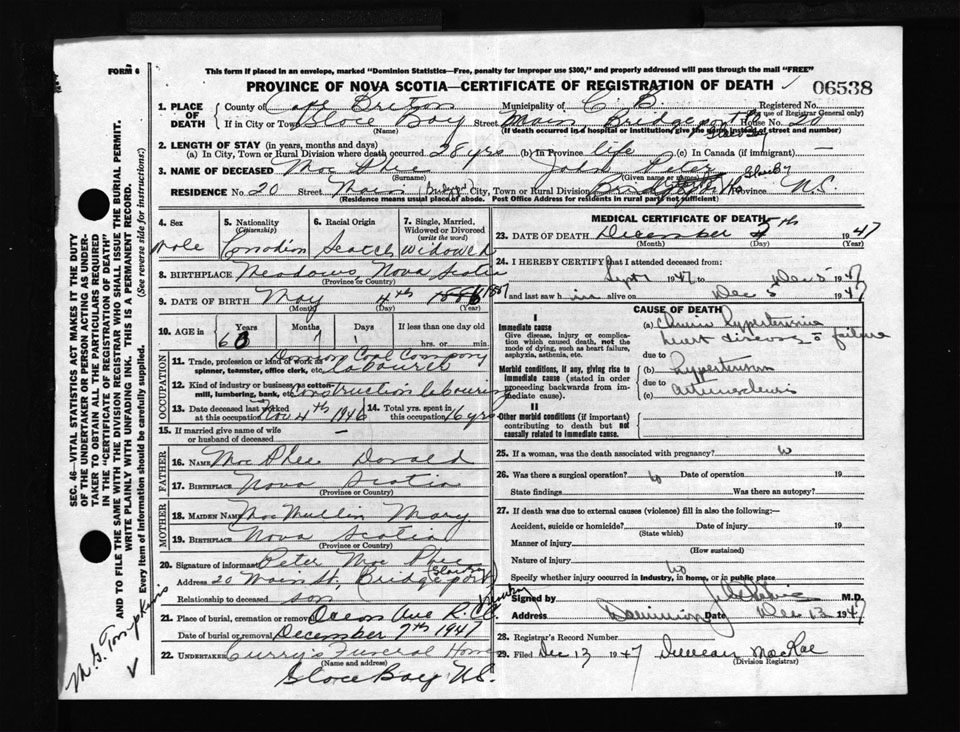 FORM 6
This form if placed in an envelope, marked "Dominion Statistics—Free, penalty for improper use $300," and properly addressed will pass through the mail "FREE"
PROVINCE OF NOVA SCOTIA—CERTIFICATE OF REGISTRATION OF DEATH
06538
1. PLACE OF DEATH
County of Cape Breton Municipality of C. B. Registered No.
(For use of Registrar General only)
If in City or Town Glace Bay Street Main, Bridgeport House No. 20
(Name) (If death occurred in a hospital or institution, give the name instead of street and number)
2. LENGTH OF STAY (in years, months and days)
(a) In City, Town or Rural Division where death occurred 28 yrs (b) In Province life (c) In Canada (if immigrant) —
3. NAME OF DECEASED Mac Phee John Peter
(Surname) (Given name or names)
RESIDENCE No. 20 Street Main City, Town or Rural Division Bridgeport Province N.S.
(Residence means usual place of abode. Post Office Address for residents in rural parts not sufficient)
4. Sex
Male
5. Nationality (Citizenship)
Canadian
6. Racial Origin
Scotch
7. Single, Married, Widowed or Divorced (write the word)
Widowed
8. BIRTHPLACE Meadows, Nova Scotia
(Province or Country)
9. DATE OF BIRTH May 4th 1887
(Month) (Day) (Year)
10. AGE in Years Months Days If less than one day old
60 7 1 hrs. or min.
OCCUPATION
11. Trade, profession or kind of work as spinner, teamster, office clerk, etc. Dominion Coal Company labourer
12. Kind of industry or business as cotton-mill, lumbering, bank, etc. Construction labouring
13. Date deceased last worked at this occupation Nov 4th 1946
14. Total yrs. spent in this occupation 16 yrs
15. If married give name of wife or husband of deceased —
FATHER
16. NAME Mac Phee Donald
17. BIRTHPLACE Nova Scotia
(Province or Country)
MOTHER
18. MAIDEN NAME MacMullin Mary
19. BIRTHPLACE Nova Scotia
(Province or Country)
20. Signature of informant Peter Mac Phee
Address 20 Main St. Bridgeport
Relationship to deceased son
21. Place of burial, cremation or removal Ocean Ave R.C.
Date of burial or removal December 7th 1947
22. UNDERTAKER Curry's Funeral Home
(Name and address)
Glace Bay N.S.
MEDICAL CERTIFICATE OF DEATH
23. DATE OF DEATH December 5th 1947
(Month) (Day) (Year)
24. I HEREBY CERTIFY that I attended deceased from:
Sept 1947 to Dec 5 1947
and last saw him alive on Dec 5 1947
CAUSE OF DEATH
I
Immediate cause
Give disease, injury or complication which caused death, not the mode of dying, such as heart failure, asphyxia, asthenia, etc.
(a) hypertensive heart disease failure
due to
Morbid conditions, if any, giving rise to immediate cause (stated in order proceeding backwards from immediate cause).
(b) hypertension
due to
(c)
II
Other morbid conditions (if important) contributing to death but not causally related to immediate cause.
25. If a woman, was the death associated with pregnancy?
26. Was there a surgical operation? Date of operation 19
State findings Was there an autopsy?
27. If death was due to external causes (violence) fill in also the following:—
Accident, suicide or homicide? Date of injury 19
(State which)
Manner of injury
(How sustained)
Nature of injury
Specify whether injury occurred in industry, in home, or in public place no
Signed by M.D.
Address Dominion Date Dec 13 1947
28. Registrar's Record Number
29. Filed Dec 13 1947 Duncan MacRae
(Division Registrar)
SEC. 46—VITAL STATISTICS ACT MAKES IT THE DUTY
OF THE UNDERTAKER OR PERSON ACTING AS UNDER-
TAKER TO OBTAIN ALL THE PARTICULARS REQUIRED
IN THE "CERTIFICATE OF REGISTRATION OF DEATH"
AND TO FILE THE SAME WITH THE DIVISION REGISTRAR WHO SHALL ISSUE THE BURIAL PERMIT.
WRITE PLAINLY WITH UNFADING INK. THIS IS A PERMANENT RECORD.
Every item of information should be carefully supplied. (See reverse side for instructions.)